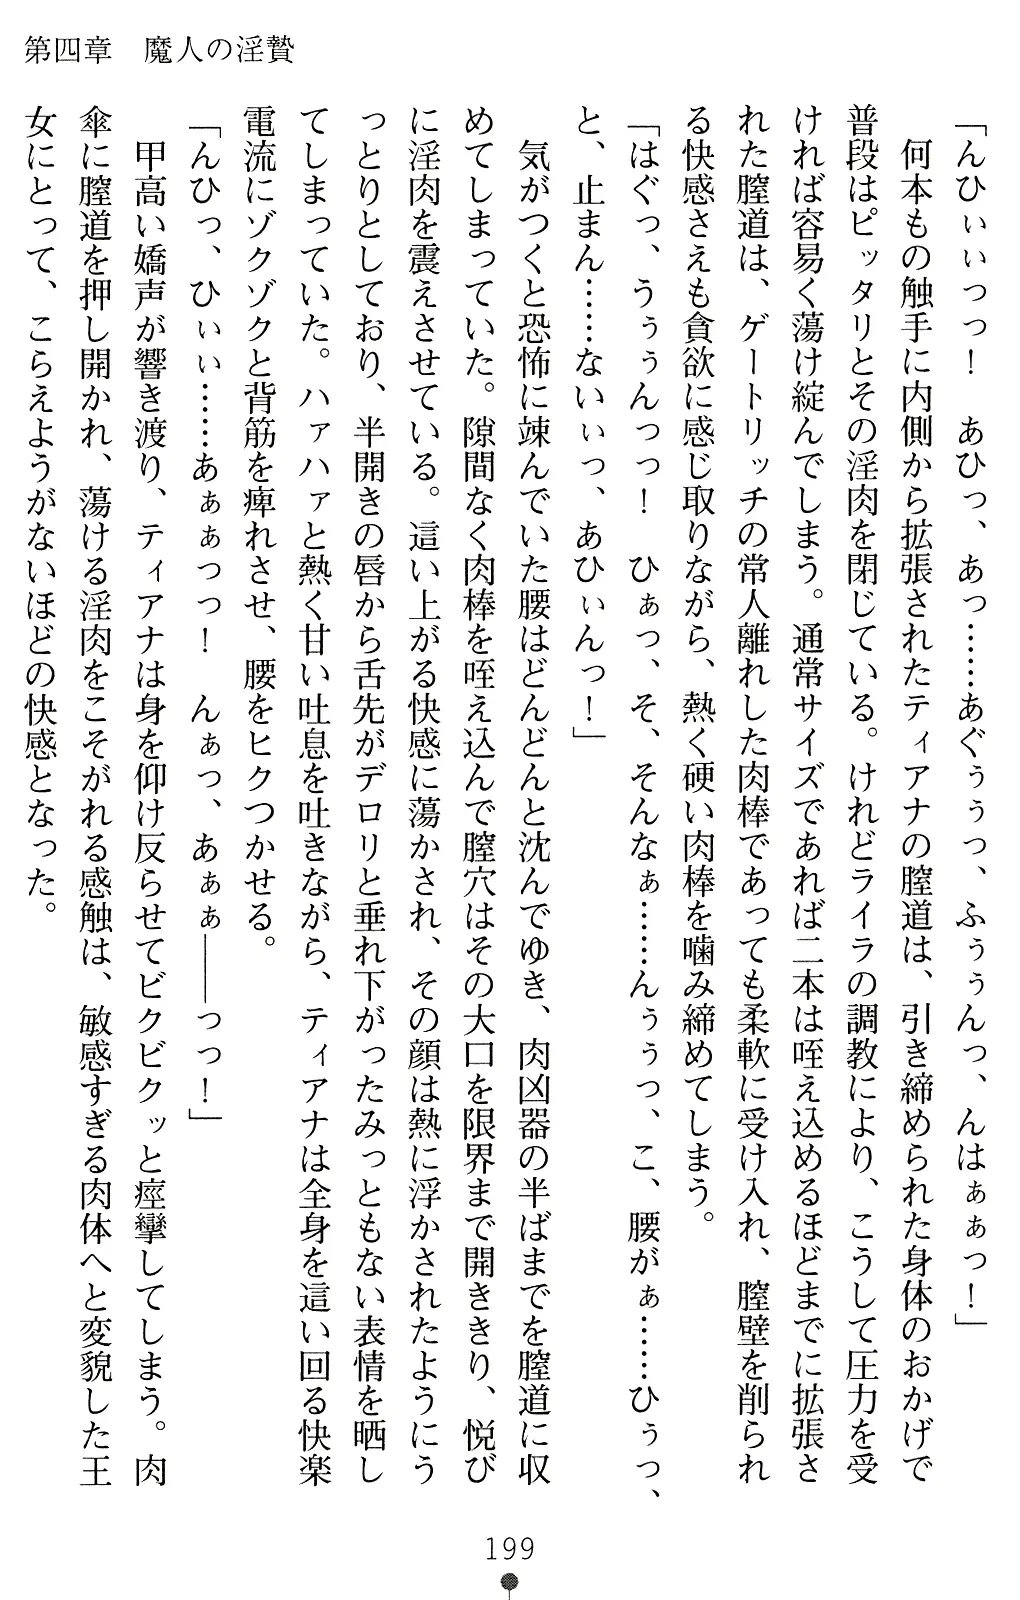 第四章　魔人の淫贄
「んひぃぃっっ！　あひっ、あっ……あぐぅぅっ、ふぅぅんっ、んはぁぁっ！」
　何本もの触手に内側から拡張されたティアナの膣道は、引き締められた身体のおかげで
普段はピッタリとその淫肉を閉じている。けれどライラの調教により、こうして圧力を受
ければ容易く蕩け綻んでしまう。通常サイズであれば二本は咥え込めるほどまでに拡張さ
れた膣道は、ゲートリッチの常人離れした肉棒であっても柔軟に受け入れ、膣壁を削られ
る快感さえも貪欲に感じ取りながら、熱く硬い肉棒を噛み締めてしまう。
「はぐっ、うぅぅんっっ！　ひぁっ、そ、そんなぁ……んぅぅっ、こ、腰がぁ……ひぅっ、
と、止まん……ないぃっ、あひぃんっ！」
　気がつくと恐怖に竦んでいた腰はどんどんと沈んでゆき、肉凶器の半ばまでを膣道に収
めてしまっていた。隙間なく肉棒を咥え込んで膣穴はその大口を限界まで開ききり、悦び
に淫肉を震えさせている。這い上がる快感に蕩かされ、その顔は熱に浮かされたようにう
っとりとしており、半開きの唇から舌先がデロリと垂れ下がったみっともない表情を晒し
てしまっていた。ハァハァと熱く甘い吐息を吐きながら、ティアナは全身を這い回る快楽
電流にゾクゾクと背筋を痺れさせ、腰をヒクつかせる。
「んひっ、ひぃぃ……あぁぁっっ！　んぁっ、あぁぁ――っっ！」
　甲高い嬌声が響き渡り、ティアナは身を仰け反らせてビクビクッと痙攣してしまう。肉
傘に膣道を押し開かれ、蕩ける淫肉をこそがれる感触は、敏感すぎる肉体へと変貌した王
女にとって、こらえようがないほどの快感となった。
199